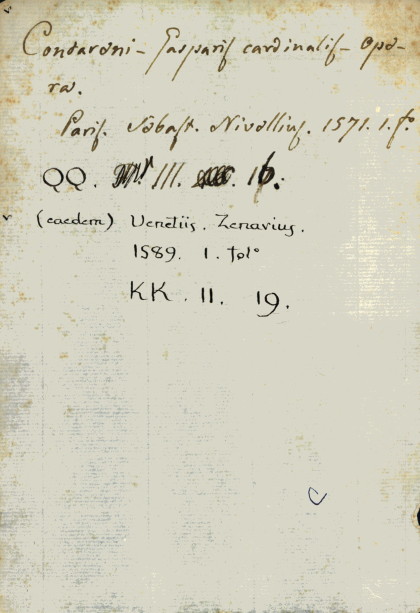 Contareni - Gasparis cardinalis - Ope-
ra.
Paris. Sebast. Nivellius. 1571. 1. fo.
QQ. III. 16.
(eaedem) Venetiis. Zenarius.
1589. 1. folo
KK. II. 19.